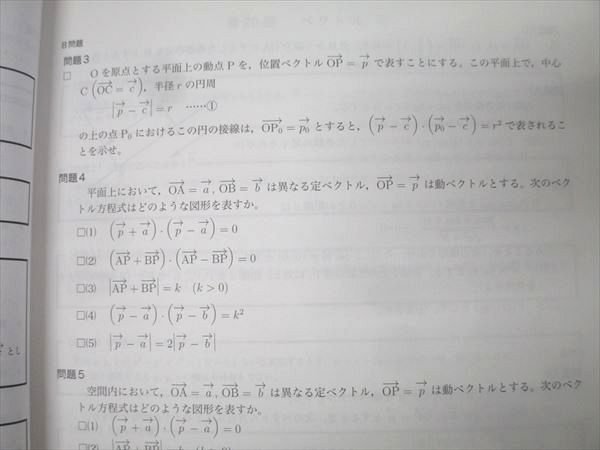 B問題
問題3
□ Oを原点とする平面上の動点Pを，位置ベクトル $\overrightarrow{OP}=\vec{p}$ で表すことにする。この平面上で，中心
C $\left(\overrightarrow{OC}=\vec{c}\right)$，半径 r の円周
$\left|\vec{p}-\vec{c}\right|=r$ ……①
の上の点 P₀ におけるこの円の接線は，$\overrightarrow{OP_0}=\vec{p_0}$ とすると，$\left(\vec{p}-\vec{c}\right)\cdot\left(\vec{p_0}-\vec{c}\right)=r^2$ で表されるこ
とを示せ。
問題4
平面上において，$\overrightarrow{OA}=\vec{a}$, $\overrightarrow{OB}=\vec{b}$ は異なる定ベクトル，$\overrightarrow{OP}=\vec{p}$ は動ベクトルとする。次のベク
トル方程式はどのような図形を表すか。
□(1) $\left(\vec{p}+\vec{a}\right)\cdot\left(\vec{p}-\vec{a}\right)=0$
□(2) $\left(\overrightarrow{AP}+\overrightarrow{BP}\right)\cdot\left(\overrightarrow{AP}-\overrightarrow{BP}\right)=0$
□(3) $\left|\overrightarrow{AP}+\overrightarrow{BP}\right|=k$ (k>0)
□(4) $\left(\vec{p}-\vec{a}\right)\cdot\left(\vec{p}-\vec{b}\right)=k^2$
□(5) $\left|\vec{p}-\vec{a}\right|=2\left|\vec{p}-\vec{b}\right|$
とし
問題5
空間内において，$\overrightarrow{OA}=\vec{a}$, $\overrightarrow{OB}=\vec{b}$ は異なる定ベクトル，$\overrightarrow{OP}=\vec{p}$ は動ベクトルとする。次のベク
トル方程式はどのような図形を表すか。
□(1) $\left(\vec{p}+\vec{a}\right)\cdot\left(\vec{p}-\vec{a}\right)=0$